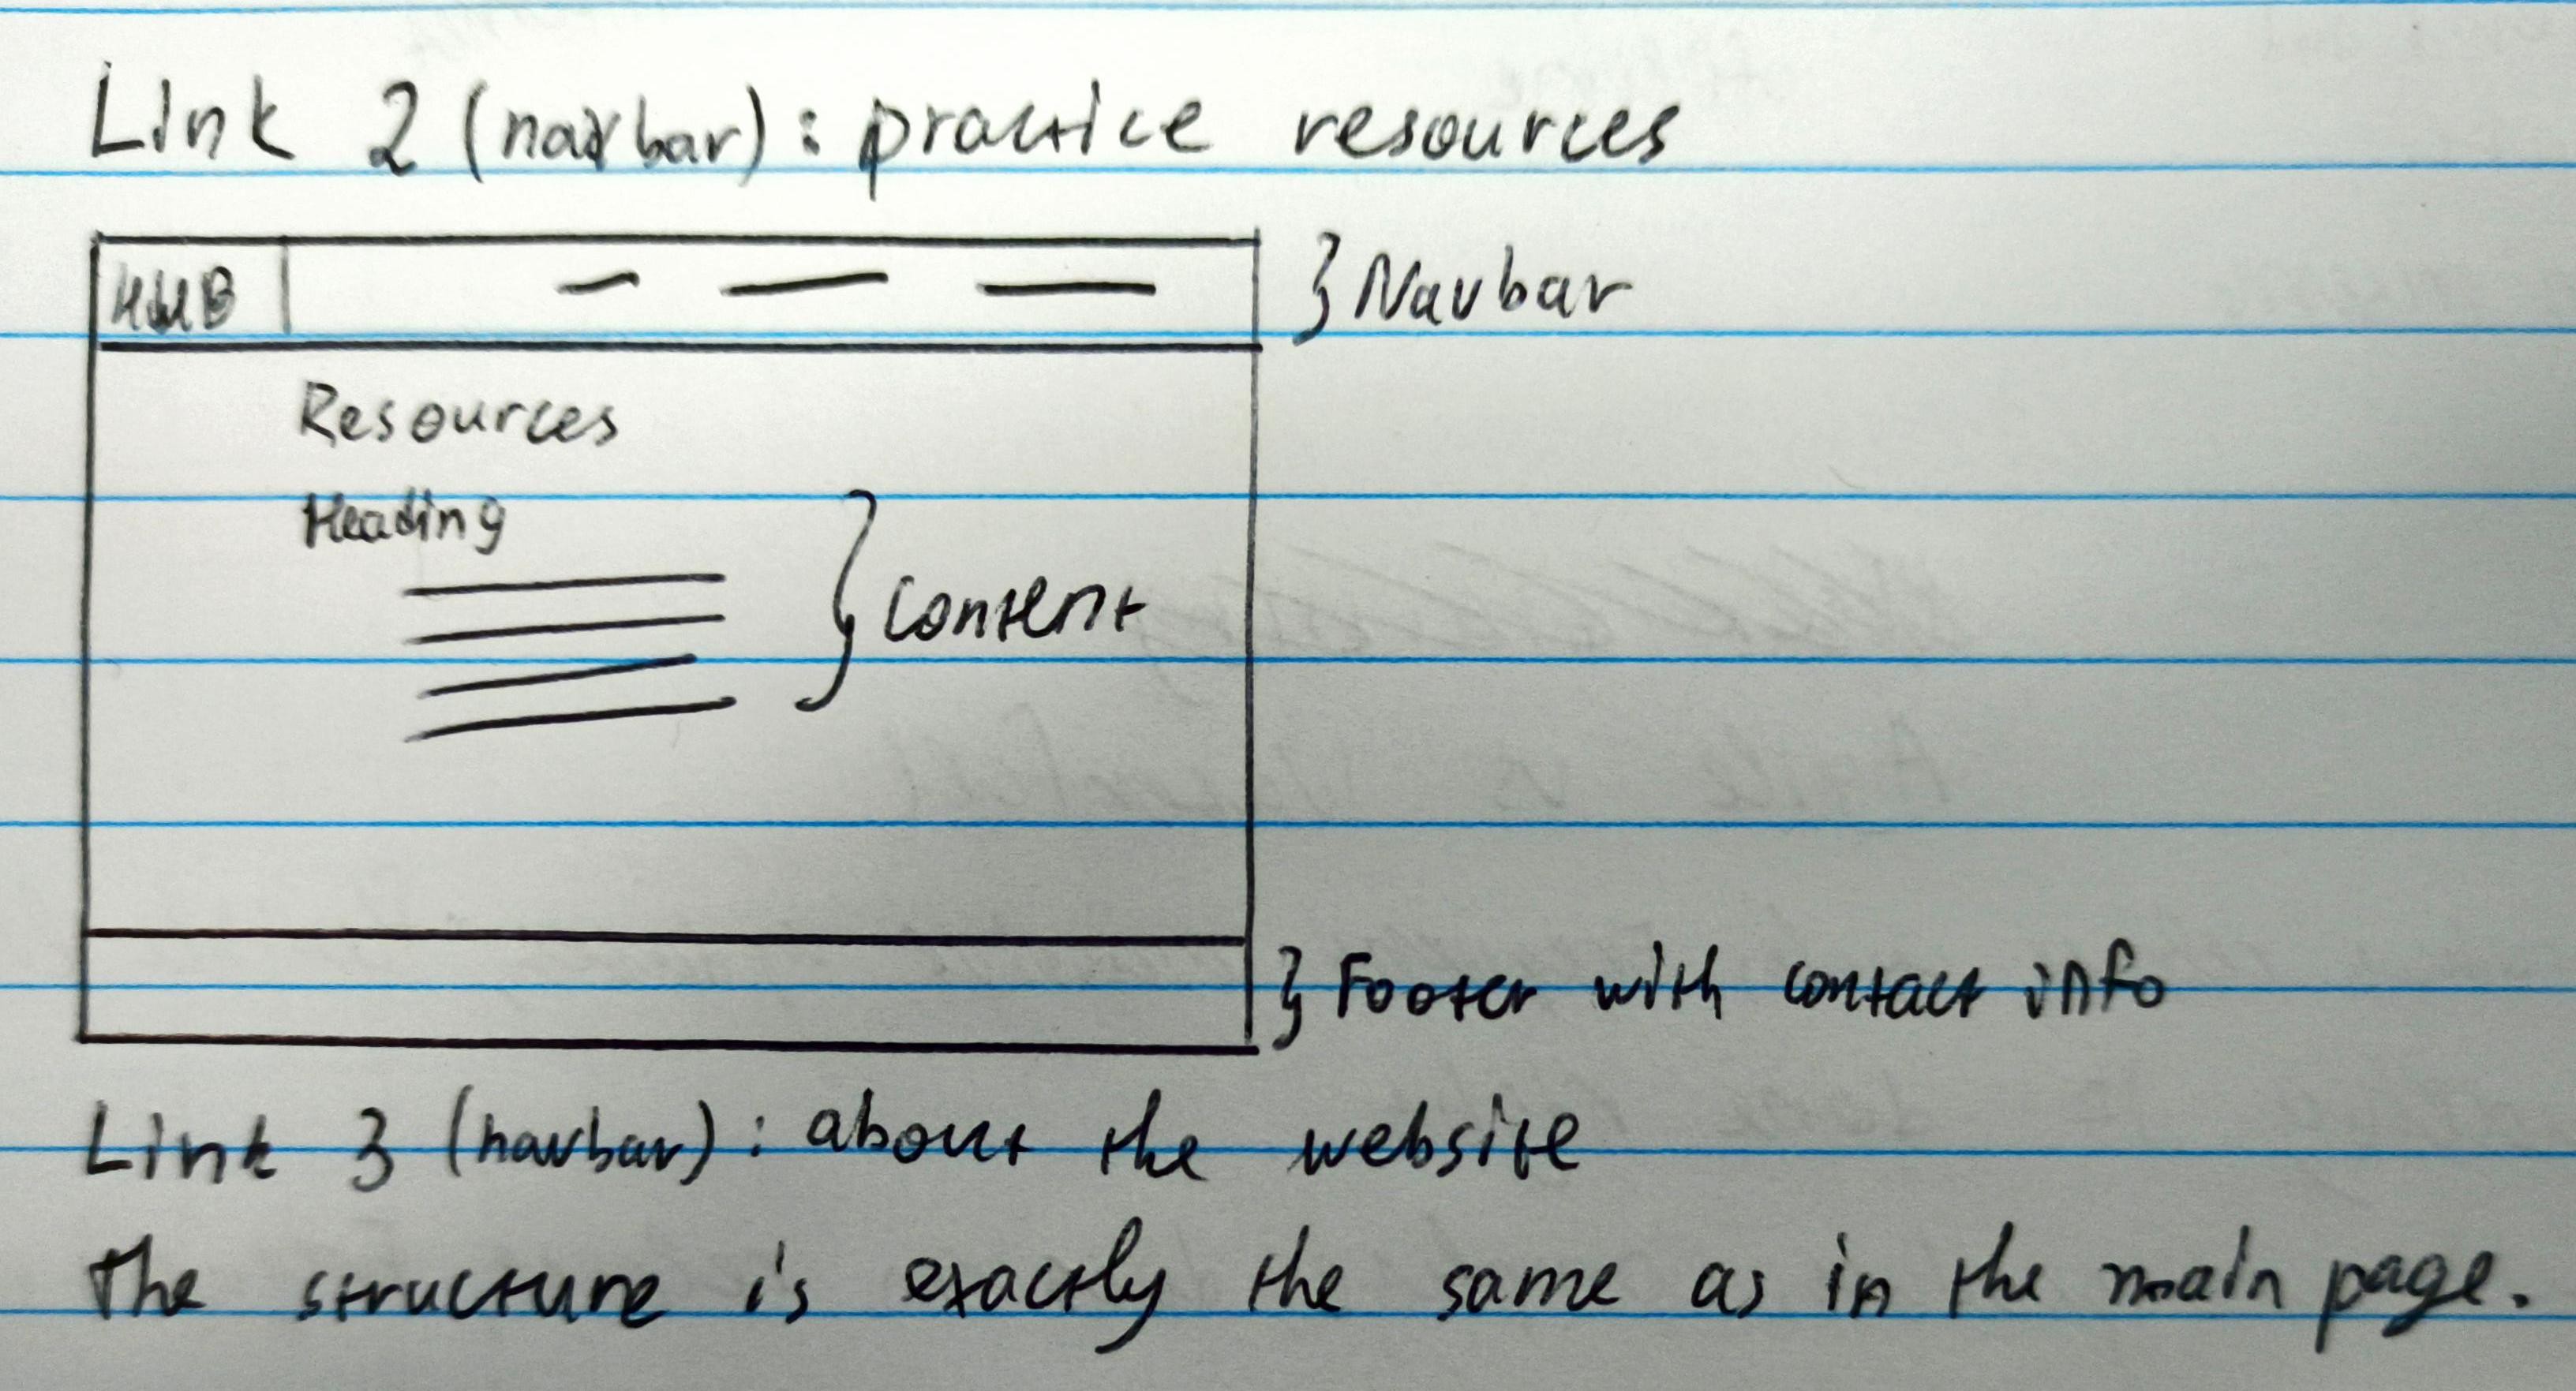 Link 2 (navbar): practice resources
} Navbar
Resources
Heading
} Content
} Footer with contact info
Link 3 (navbar): about the website
The structure is exactly the same as in the main page.